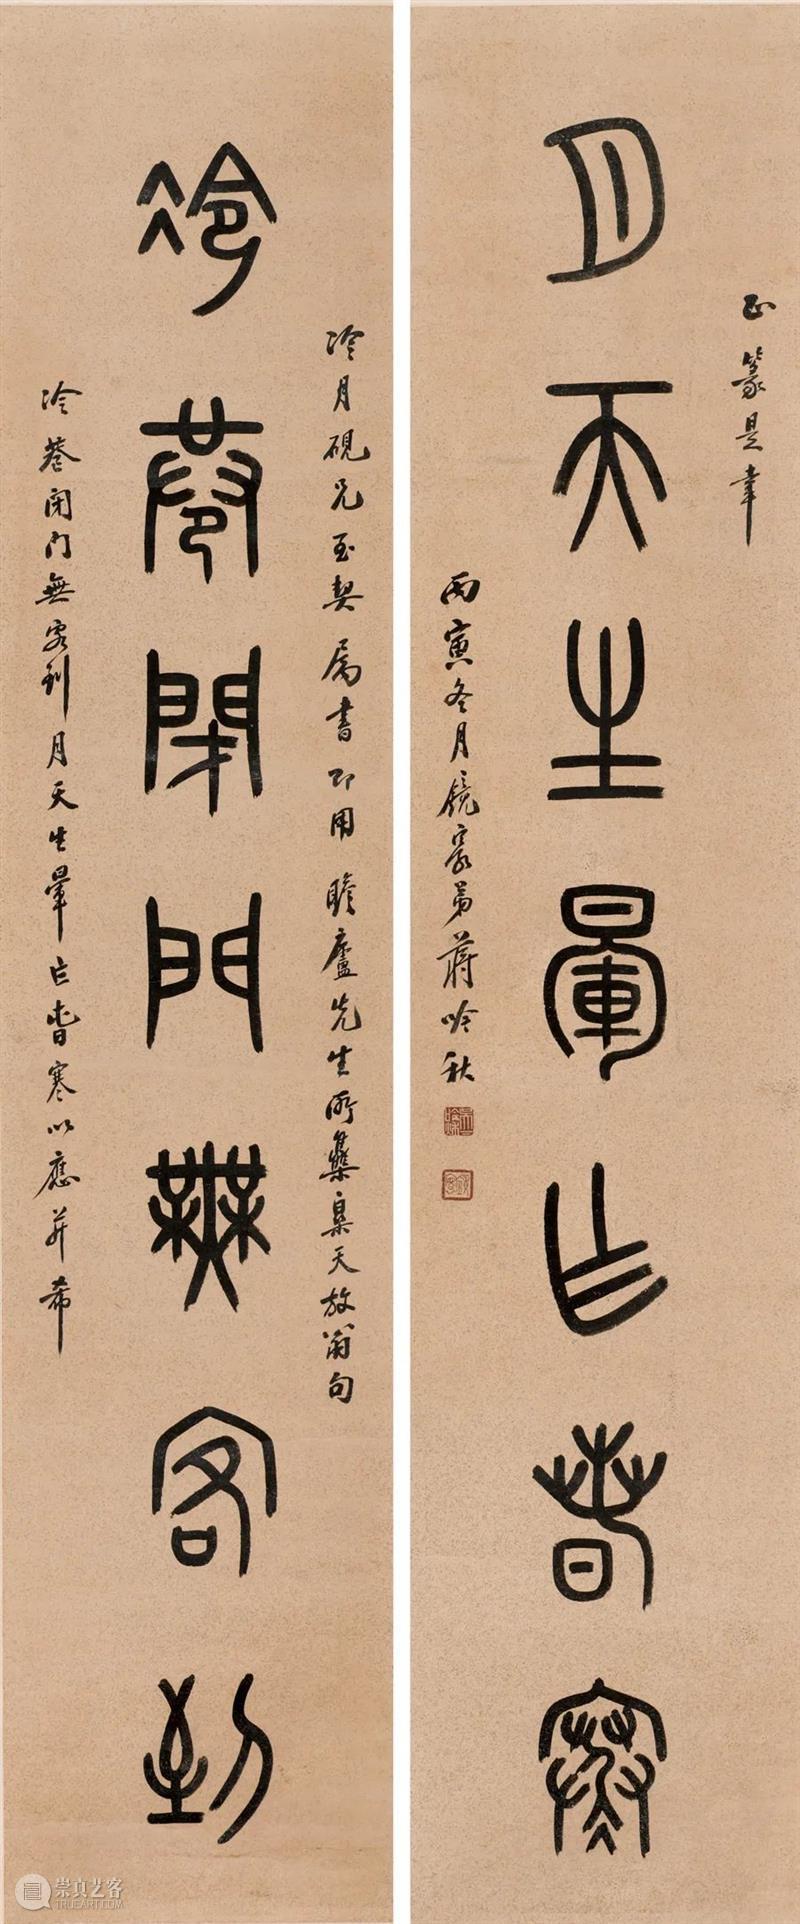 冷巷閉門無客到
冷月硯兄至契屬書即用瞻廬先生所集樂天放翁句
冷巷閉門無客到月天生暈乍萅寒以應并希
月天生暈乍萅寒
正篆是幸
丙寅冬月鏡寰弟蔣吟秋
崇真艺客
TRUEART.COM